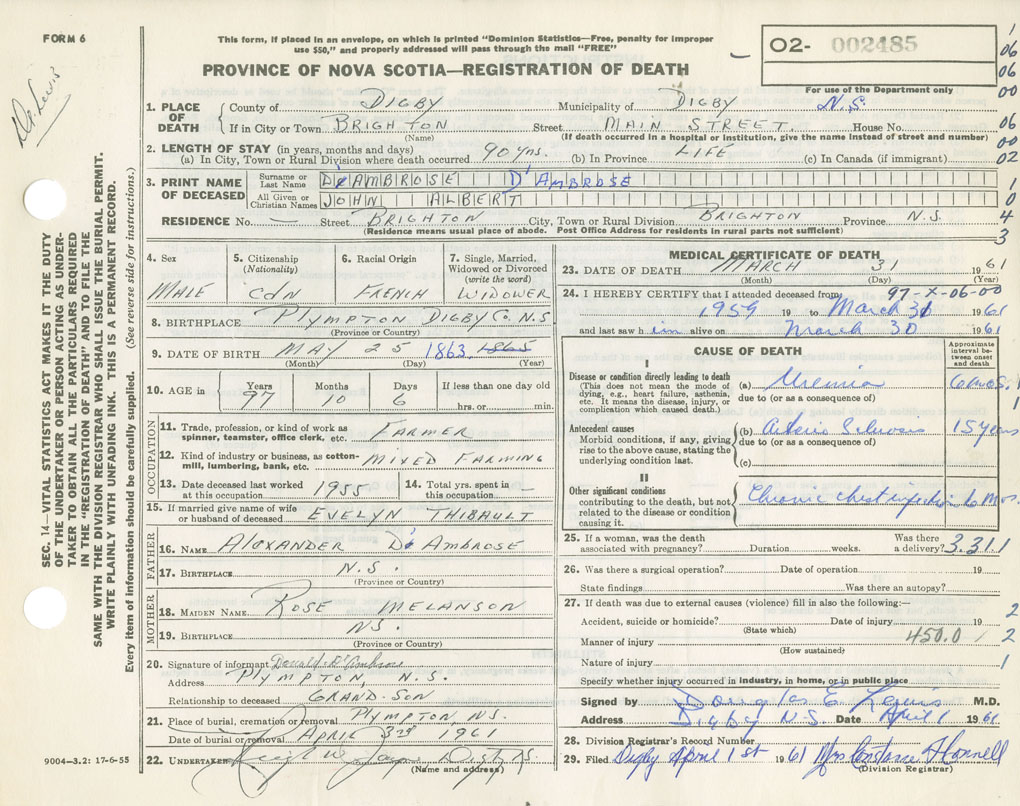 FORM 6
This form, if placed in an envelope, on which is printed "Dominion Statistics—Free, penalty for improper
use $50," and properly addressed will pass through the mail "FREE"
PROVINCE OF NOVA SCOTIA—REGISTRATION OF DEATH
O2- 002485
For use of the Department only
Dr. Lewis
1. PLACE OF DEATH
County of DIGBY Municipality of DIGBY N.S.
If in City or Town BRIGHTON Street MAIN STREET. House No.
(Name) (If death occurred in a hospital or institution, give the name instead of street and number)
2. LENGTH OF STAY (in years, months and days)
(a) In City, Town or Rural Division where death occurred 90 yrs. (b) In Province LIFE (c) In Canada (if immigrant)
3. PRINT NAME OF DECEASED
Surname or Last Name D'AMBROSE D'AMBROSE
All Given or Christian Names JOHN ALBERT
RESIDENCE No. — Street BRIGHTON City, Town or Rural Division BRIGHTON Province N.S.
(Residence means usual place of abode. Post Office Address for residents in rural parts not sufficient)
4. Sex
MALE
5. Citizenship
(Nationality)
CDN
6. Racial Origin
FRENCH
7. Single, Married,
Widowed or Divorced
(write the word)
WIDOWER
8. BIRTHPLACE PLYMPTON DIGBY CO. N.S
(Province or Country)
9. DATE OF BIRTH MAY 25 1863 1865
(Month) (Day) (Year)
10. AGE in
Years Months Days If less than one day old
97 10 6 hrs. or min.
OCCUPATION
11. Trade, profession, or kind of work as
spinner, teamster, office clerk, etc. FARMER
12. Kind of industry or business, as cotton-
mill, lumbering, bank, etc. MIXED FARMING
13. Date deceased last worked
at this occupation 1955
14. Total yrs. spent in
this occupation —
15. If married give name of wife
or husband of deceased EVELYN THIBAULT
FATHER
16. NAME ALEXANDER D'AMBROSE
17. BIRTHPLACE N.S.
(Province or Country)
MOTHER
18. MAIDEN NAME ROSE MELANSON
19. BIRTHPLACE N.S.
(Province or Country)
20. Signature of informant Donald D'Ambrose
Address PLYMPTON N.S.
Relationship to deceased GRAND-SON
21. Place of burial, cremation or removal PLYMPTON, N.S.
Date of burial or removal APRIL 3rd 1961
22. UNDERTAKER
(Name and address)
MEDICAL CERTIFICATE OF DEATH
23. DATE OF DEATH MARCH 31 1961
(Month) (Day) (Year)
24. I HEREBY CERTIFY that I attended deceased from 97-X-06-00
1959 19 to March 31 1961
and last saw him alive on March 30 1961
CAUSE OF DEATH
Approximate interval be-tween onset and death
I
Disease or condition directly leading to death
(This does not mean the mode of
dying, e.g., heart failure, asthenia,
etc. It means the disease, injury, or
complication which caused death.)
(a) Uremia 6 mos.
due to (or as a consequence of)
Antecedent causes
Morbid conditions, if any, giving
rise to the above cause, stating the
underlying condition last.
(b) Arterio Sclerosis 15 years
due to (or as a consequence of)
(c)
II
Other significant conditions
contributing to the death, but not
related to the disease or condition
causing it.
Chronic chest infection 6 Mos.
25. If a woman, was the death
associated with pregnancy? Duration weeks. Was there a delivery? 3.31.1
26. Was there a surgical operation? Date of operation 19
State findings Was there an autopsy?
27. If death was due to external causes (violence) fill in also the following:—
Accident, suicide or homicide? Date of injury 19
(State which)
Manner of injury 450.0
(How sustained)
Nature of injury
Specify whether injury occurred in industry, in home, or in public place
Signed by Douglas E. Lewis M.D.
Address Digby N.S. Date April 1 1961
28. Division Registrar's Record Number
29. Filed Digby April 1st 1961 Mrs Constance
(Division Registrar)
SEC. 14—VITAL STATISTICS ACT MAKES IT THE DUTY
OF THE UNDERTAKER OR PERSON ACTING AS UNDER-
TAKER TO OBTAIN ALL THE PARTICULARS REQUIRED
IN THE "REGISTRATION OF DEATH" AND TO FILE THE
SAME WITH THE DIVISION REGISTRAR WHO SHALL ISSUE THE BURIAL PERMIT.
WRITE PLAINLY WITH UNFADING INK. THIS IS A PERMANENT RECORD.
Every item of information should be carefully supplied. (See reverse side for instructions.)
9004—3.2: 17-6-55
1
06
06
00
06
00
02
1
0
4
3
1
2
2
1